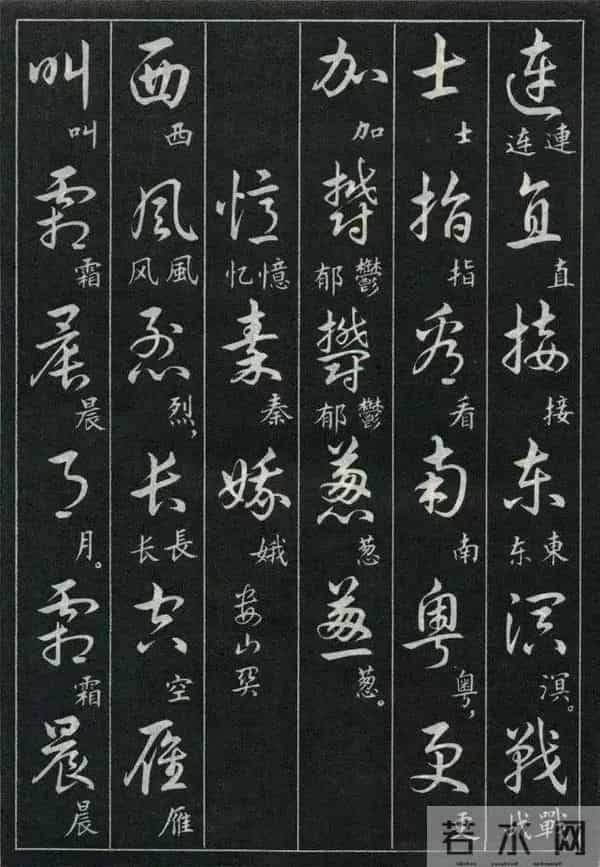 连直接东溟战
連连 直 接 東东 溟。 戰战
士指看南粤更
士 指 看 南 粤， 更
加郁郁葱葱
加 鬱郁 鬱郁 葱 葱。
忆秦娥 娄山关
憶忆 秦 娥
西风烈长空雁
西 風风 烈， 長长 空 雁
叫霜晨月霜晨
叫 霜 晨 月。 霜 晨
若水网